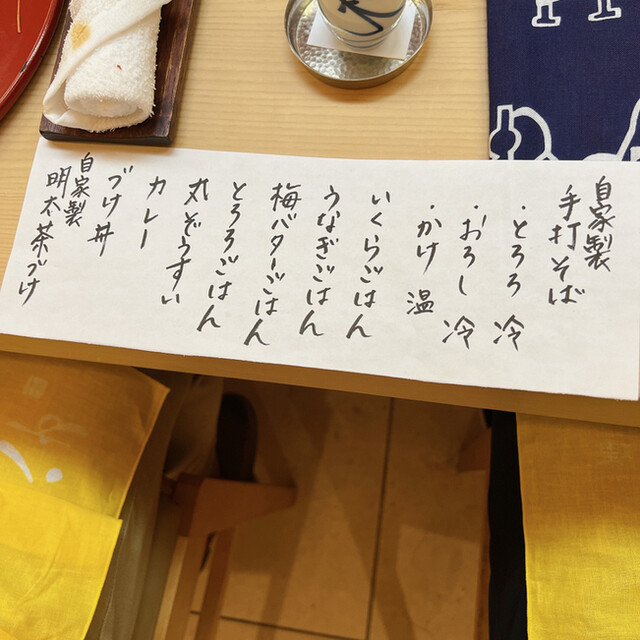 自家製
手打そば
・とろろ 冷
・おろし 冷
・かけ 温
いくらごはん
うなぎごはん
梅バターごはん
とろろごはん
丸ぞうすい
カレー
づけ丼
自家製
明太茶づけ